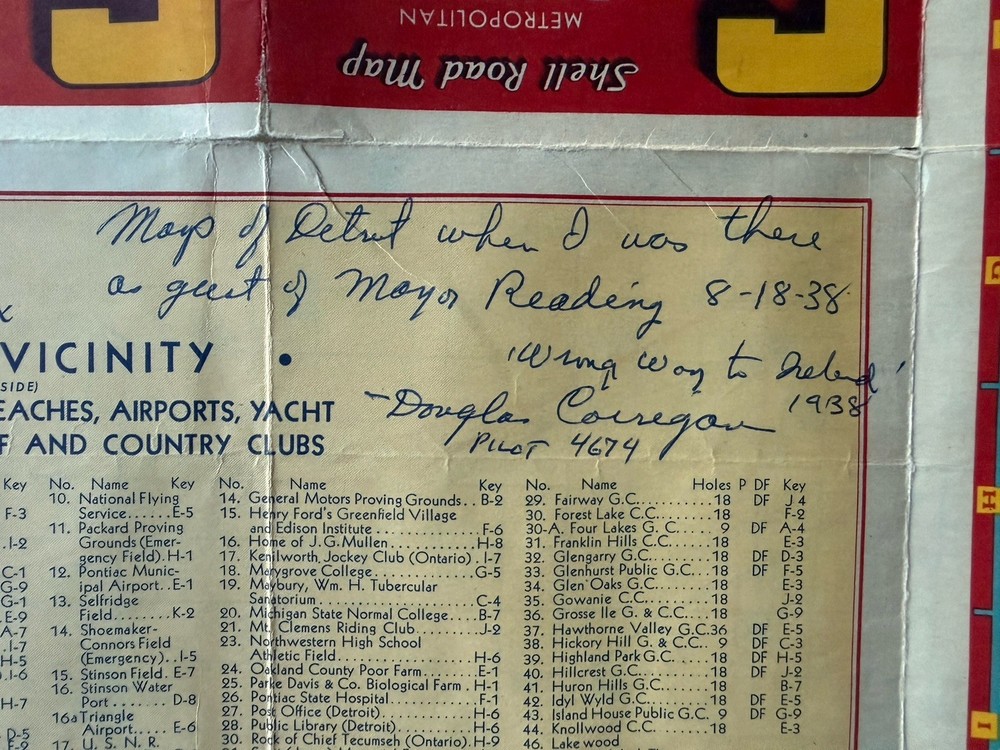 METROPOLITAN
Shell Road Map
Map of Detroit when I was there
as guest of Mayor Reading 8-18-38
'Wrong Way to Ireland'
1938
- Douglas Corrigan
PILOT 4674
VICINITY •
SIDE)
EACHES, AIRPORTS, YACHT
F AND COUNTRY CLUBS
Key No. Name Key
10. National Flying
F-3 Service......E-5
11. Packard Proving
I-2 Grounds (Emer-
gency Field). H-1
C-1 12. Pontiac Munic-
G-9 ipal Airport..E-1
G-1 13. Selfridge
E-9 Field........K-2
A-7 14. Shoemaker-
I-7 Connors Field
H-5 (Emergency)..I-5
I-6 15. Stinson Field. E-7
16. Stinson Water
H-7 Port........D-8
16a Triangle
D-5 Airport..... E-6
E-9 17. U. S. N. R.
No. Name Key
14. General Motors Proving Grounds.. B-2
15. Henry Ford's Greenfield Village
and Edison Institute............F-6
16. Home of J. G. Mullen............H-8
17. Kenilworth Jockey Club (Ontario). I-7
18. Marygrove College..............G-5
19. Maybury, Wm. H. Tubercular
Sanatorium.....................C-4
20. Michigan State Normal College....B-7
21. Mt. Clemens Riding Club.........J-2
23. Northwestern High School
Athletic Field..................H-6
24. Oakland County Poor Farm.......E-1
25. Parke Davis & Co. Biological Farm. H-1
26. Pontiac State Hospital...........F-1
27. Post Office (Detroit)............H-6
28. Public Library (Detroit)..........H-6
30. Rock of Chief Tecumseh (Ontario). H-9
No. Name Holes P DF Key
29. Fairway G.C..........18 DF J 4
30. Forest Lake C.C.......18 F-2
30-A. Four Lakes G. C..... 9 DF A-4
31. Franklin Hills C.C......18 E-3
32. Glengarry G.C.........18 DF D-3
33. Glenhurst Public G.C...18 DF F-5
34. Glen Oaks G.C........18 E-3
35. Gowanie C.C..........18 J-2
36. Grosse Ile G. & C.C....18 G-9
37. Hawthorne Valley G.C.36 DF E-5
38. Hickory Hill G. & C.C.. 9 DF C-3
39. Highland Park G.C.....18 DF H-5
40. Hillcrest G.C..........18 DF J-2
41. Huron Hills G.C.......18 B-7
42. Idyl Wyld G.C.........18 DF E-5
43. Island House Public G.C. 9 DF G-9
44. Knollwood C.C........18 E-3
46. Lakewood
H
I